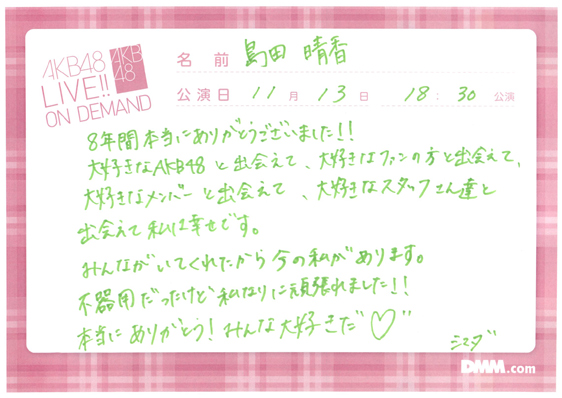 AKB48
LIVE!!
ON DEMAND
AKB
48
名 前 島田 晴香
公演日 11月 13日 18:30 公演
8年間本当にありがとうございました!!
大好きなAKB48と出会えて、大好きなファンの方と出会えて、
大好きなメンバーと出会えて、大好きなスタッフさん達と
出会えて私は幸せです。
みんながいてくれたから今の私があります。
不器用だったけど私なりに頑張れました!!
本当にありがとう!みんな大好きだ♡"
シマダ
DMM.com